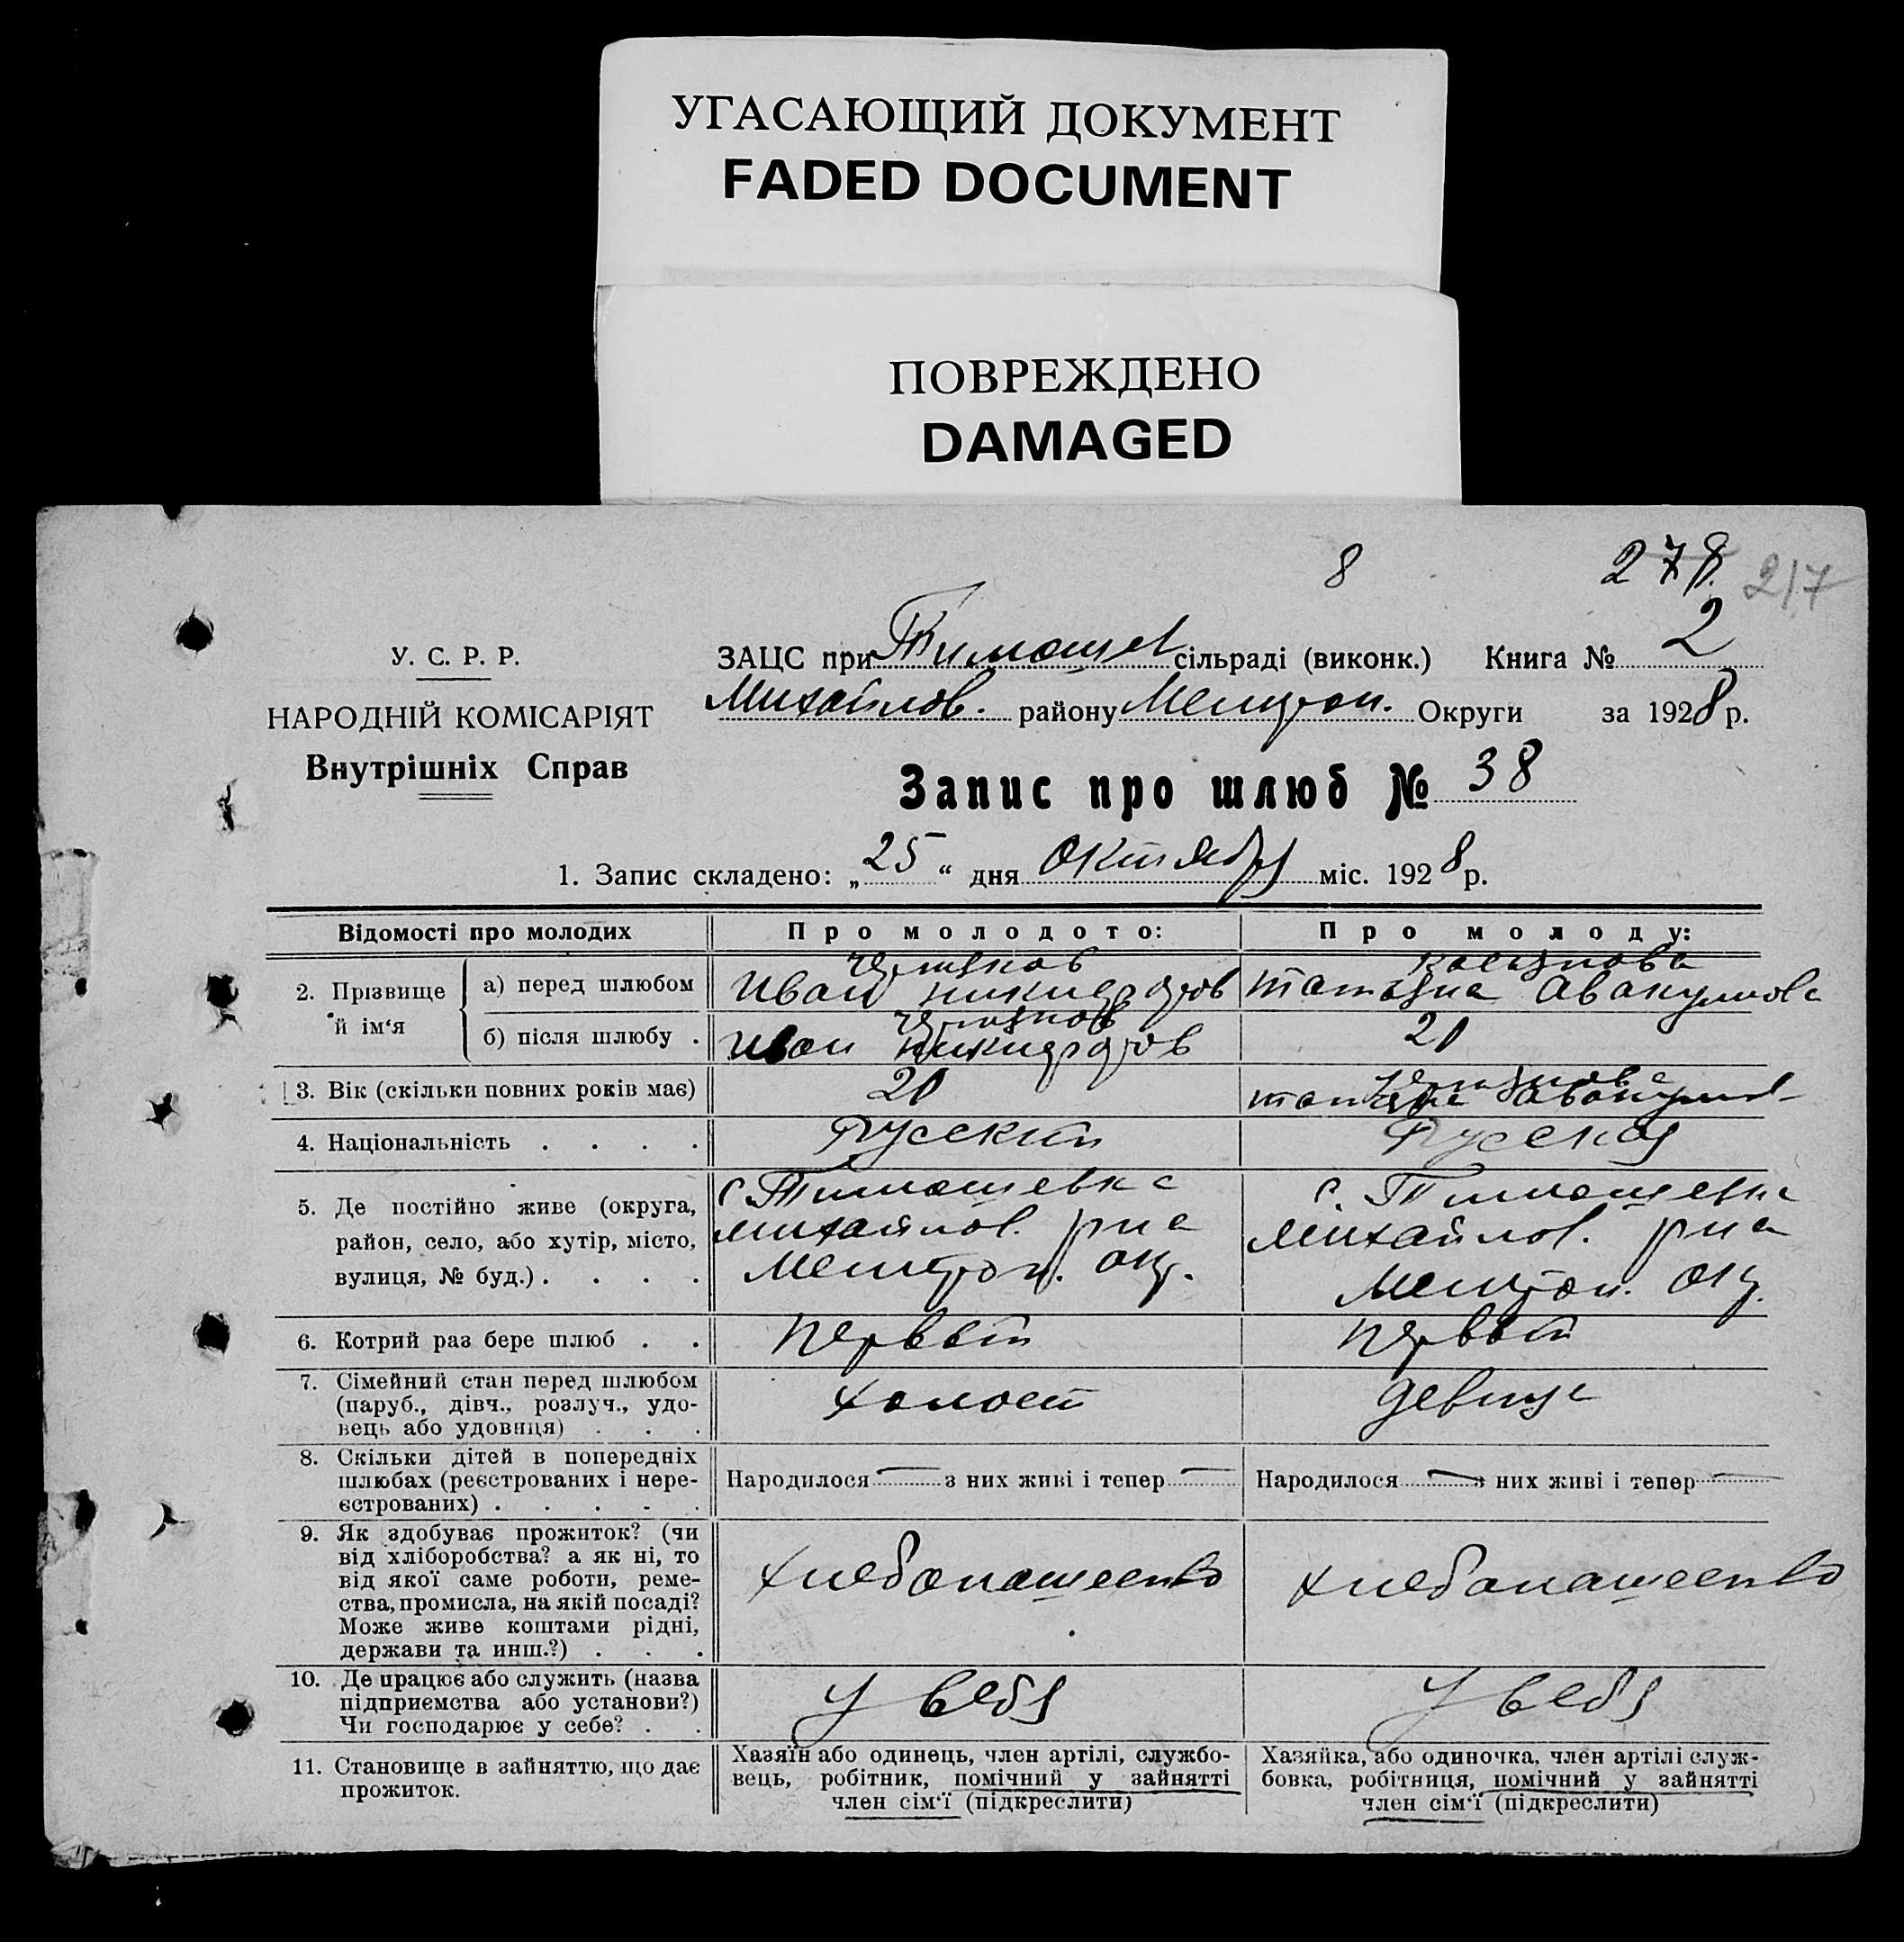 УГАСАЮЩИЙ ДОКУМЕНТ
FADED DOCUMENT
ПОВРЕЖДЕНО
DAMAGED
8 278. 217
У. С. Р. Р.
НАРОДНІЙ КОМІСАРІЯТ
Внутрішніх Справ
ЗАЦС при Тимошев сільраді (виконк.) Книга № 2
Михайлов. району Мелитоп. Округи за 1928 р.
Запис про шлюб № 38
1. Запис складено: „25“ дня октября міс. 1928 р.
Відомості про молодих Про молодого: Про молоду:
2. Прізвище й ім‘я
а) перед шлюбом
Иван никифоров
татьяна Авакумова
б) після шлюбу .
Иван никифоров
20
3. Вік (скільки повних років має)
20
татьяна
4. Національність . . . .
Русский
Русская
5. Де постійно живе (округа,
район, село, або хутір, місто,
вулиця, № буд.) . . . .
с. Тимошевка
михайлов. р на
Мелитоп. окр.
с. Тимошевка
михайлов. р на
Мелитоп. окр.
6. Котрий раз бере шлюб . .
первый
первый
7. Сімейний стан перед шлюбом
(паруб., дівч., розлуч., удо-
вець або удовиця) . . .
холост
девица
8. Скільки дітей в попередніх
шлюбах (реєстрованих і нере-
єстрованих) . . . . .
Народилося — з них живі і тепер —
Народилося — з них живі і тепер —
9. Як здобуває прожиток? (чи
від хліборобства? а як ні, то
від якої саме роботи, реме-
ства, промисла, на якій посаді?
Може живе коштами рідні,
держави та инш.?) . . .
хлебопашество
хлебопашество
10. Де працює або служить (назва
підприємства або установи?)
Чи господарює у себе? . .
У себя
У себя
11. Становище в зайняттю, що дає
прожиток.
Хазяїн або одинець, член артілі, службо-
вець, робітник, помічний у зайнятті
член сім‘ї (підкреслити)
Хазяйка, або одиночка, член артілі служ-
бовка, робітниця, помічний у зайнятті
член сім‘ї (підкреслити)